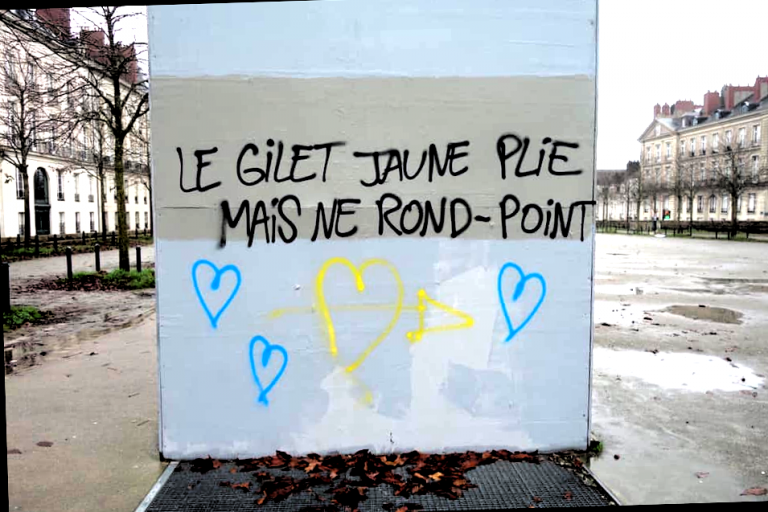 LE GILET JAUNE PLIE
MAIS NE ROND-POINT